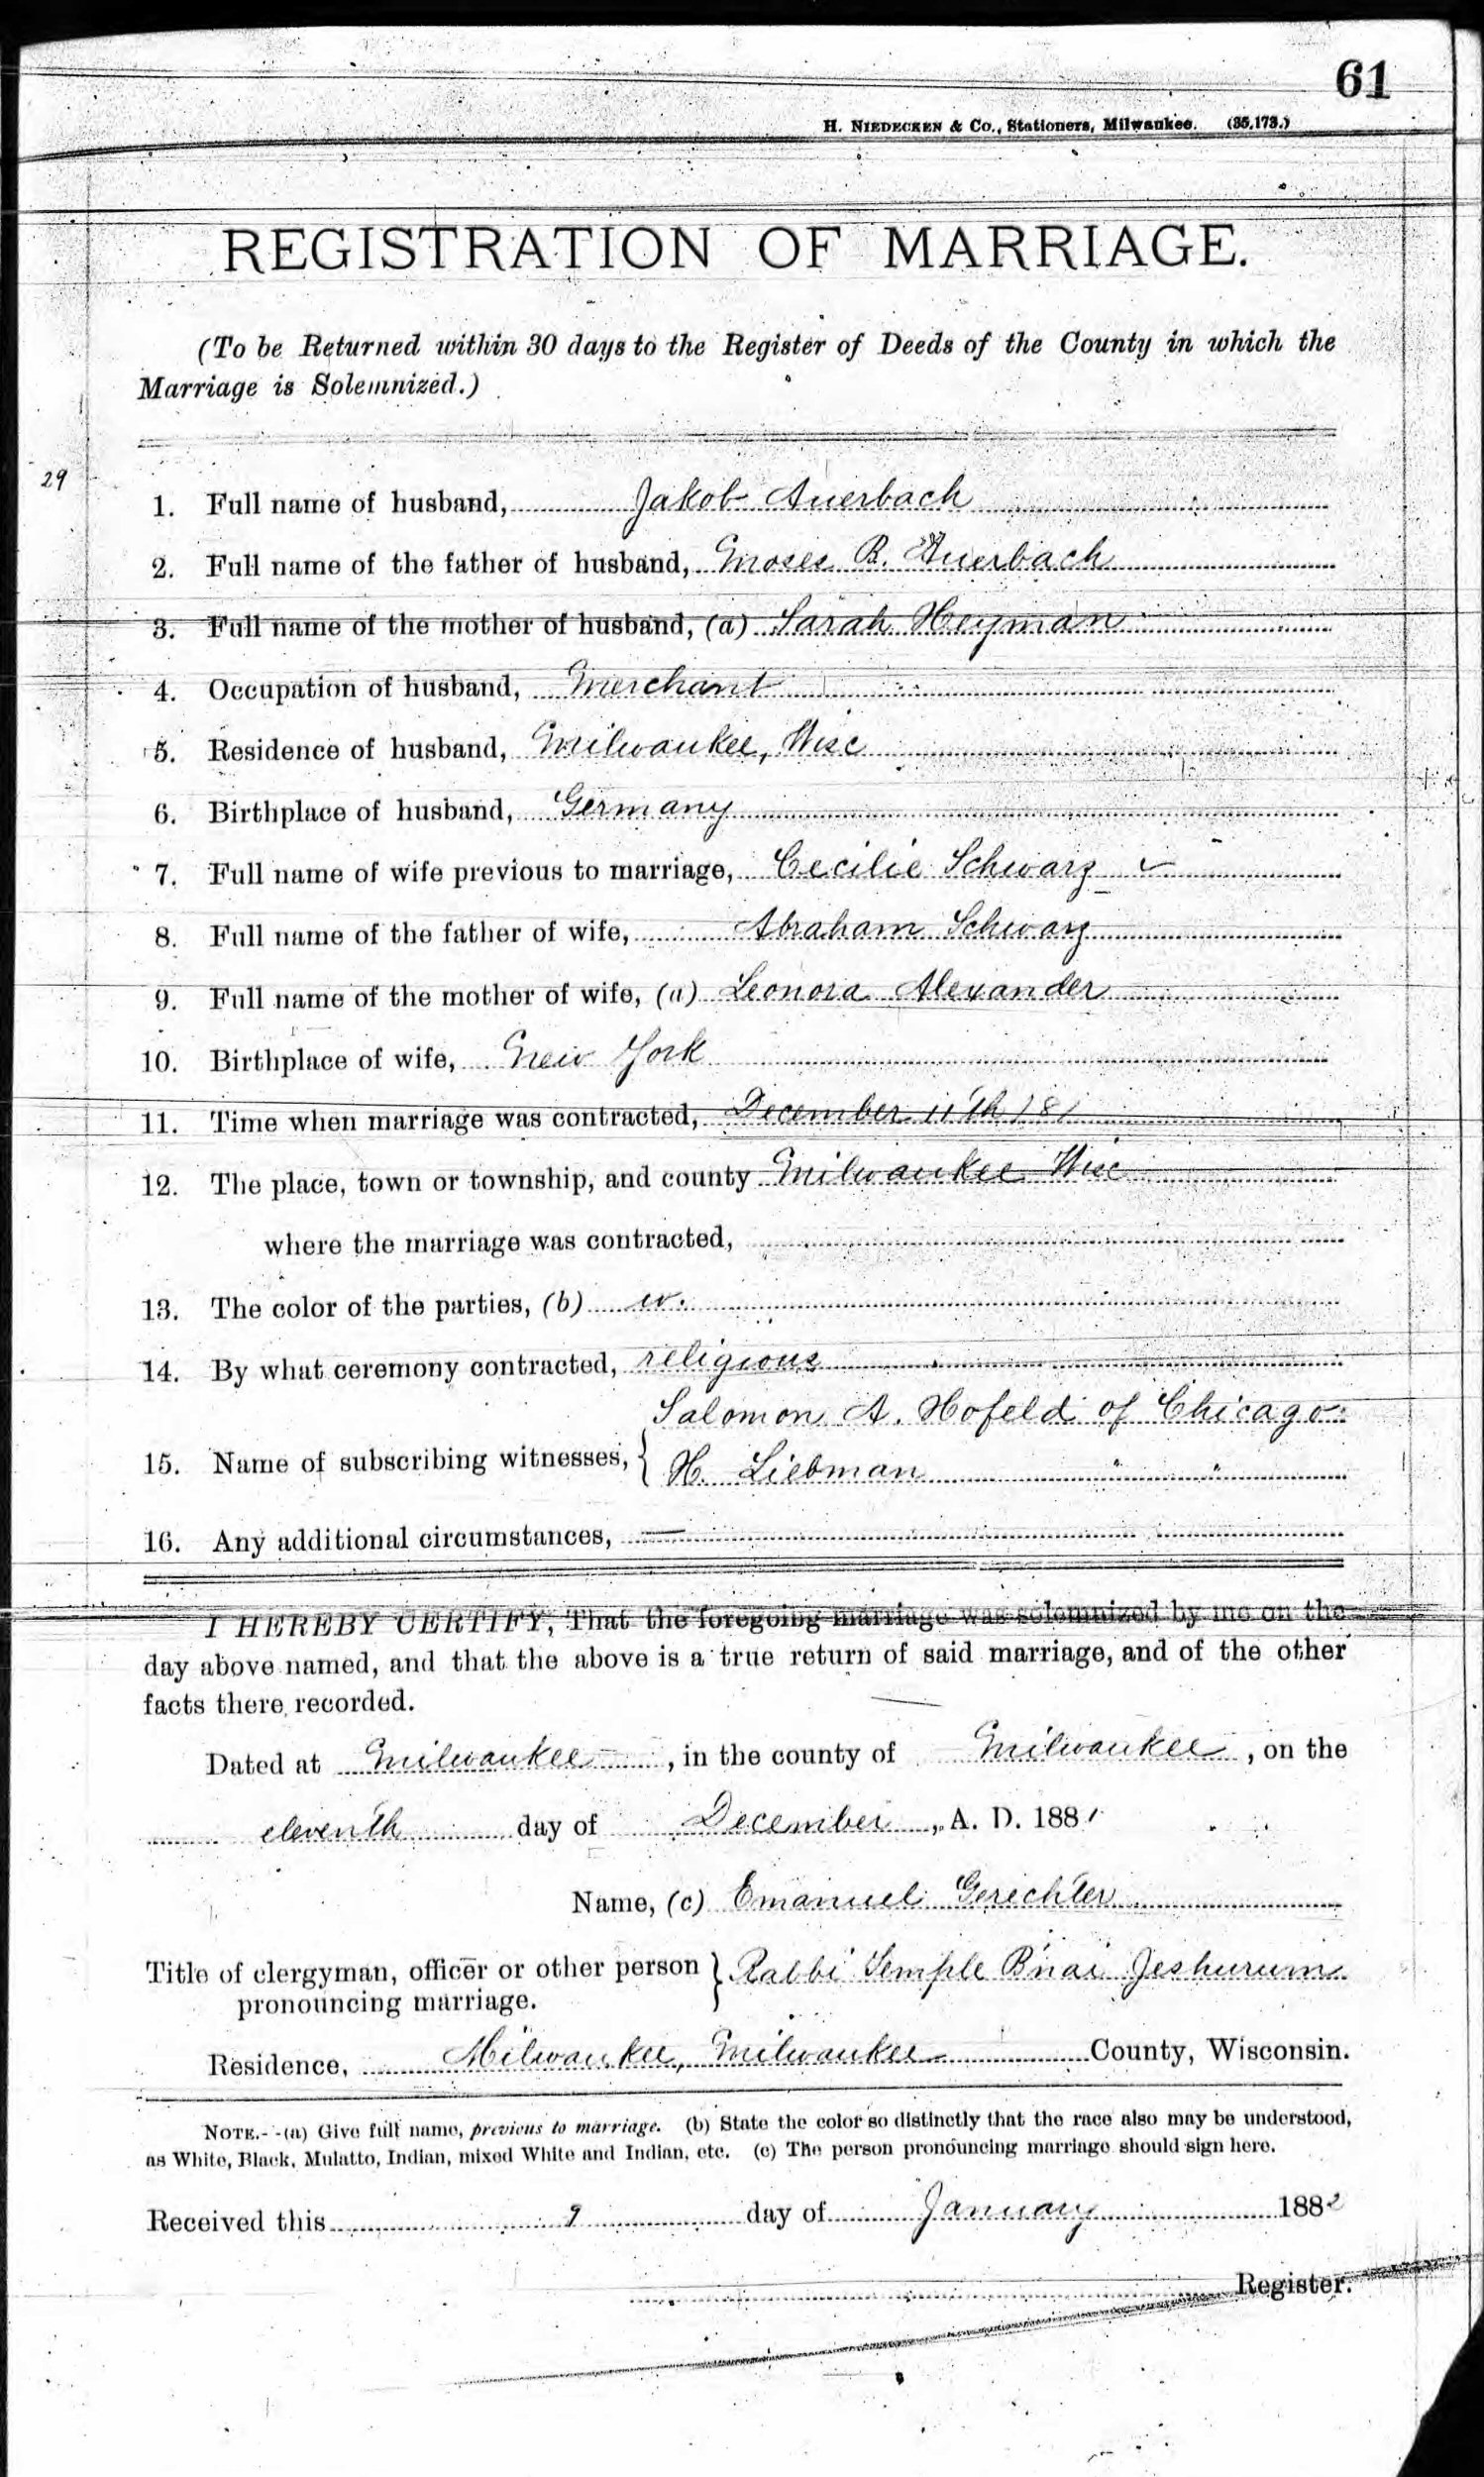 61
H. NIEDECKEN & Co., Stationers, Milwaukee. (35,173.)
REGISTRATION OF MARRIAGE.
(To be Returned within 30 days to the Register of Deeds of the County in which the
Marriage is Solemnized.)
29
1. Full name of husband, Jakob Auerbach
2. Full name of the father of husband, Moses B. Auerbach
3. Full name of the mother of husband, (a) Sarah Heyman
4. Occupation of husband, Merchant
5. Residence of husband, Milwaukee, Wisc
6. Birthplace of husband, Germany
7. Full name of wife previous to marriage, Cecilie Schwarz ✓
8. Full name of the father of wife, Abraham Schwarz
9. Full name of the mother of wife, (a) Leonora Alexander
10. Birthplace of wife, New York
11. Time when marriage was contracted, December 11th 181
12. The place, town or township, and county Milwaukee Wisc
where the marriage was contracted,
13. The color of the parties, (b) w.
14. By what ceremony contracted, religious
Salomon A. Hofeld of Chicago
15. Name of subscribing witnesses, { H. Liebman " "
16. Any additional circumstances, —
I HEREBY CERTIFY, That the foregoing marriage was solemnized by me on the
day above named, and that the above is a true return of said marriage, and of the other
facts there recorded.
Dated at Milwaukee, in the county of Milwaukee, on the
eleventh day of December, A. D. 1881
Name, (c) Emanuel Gerechter
Title of clergyman, officer or other person } Rabbi Temple B'nai Jeshurum
pronouncing marriage.
Residence, Milwaukee, Milwaukee County, Wisconsin.
NOTE.--(a) Give full name, previous to marriage. (b) State the color so distinctly that the race also may be understood,
as White, Black, Mulatto, Indian, mixed White and Indian, etc. (c) The person pronouncing marriage should sign here.
Received this 9 day of January 1882
Register.